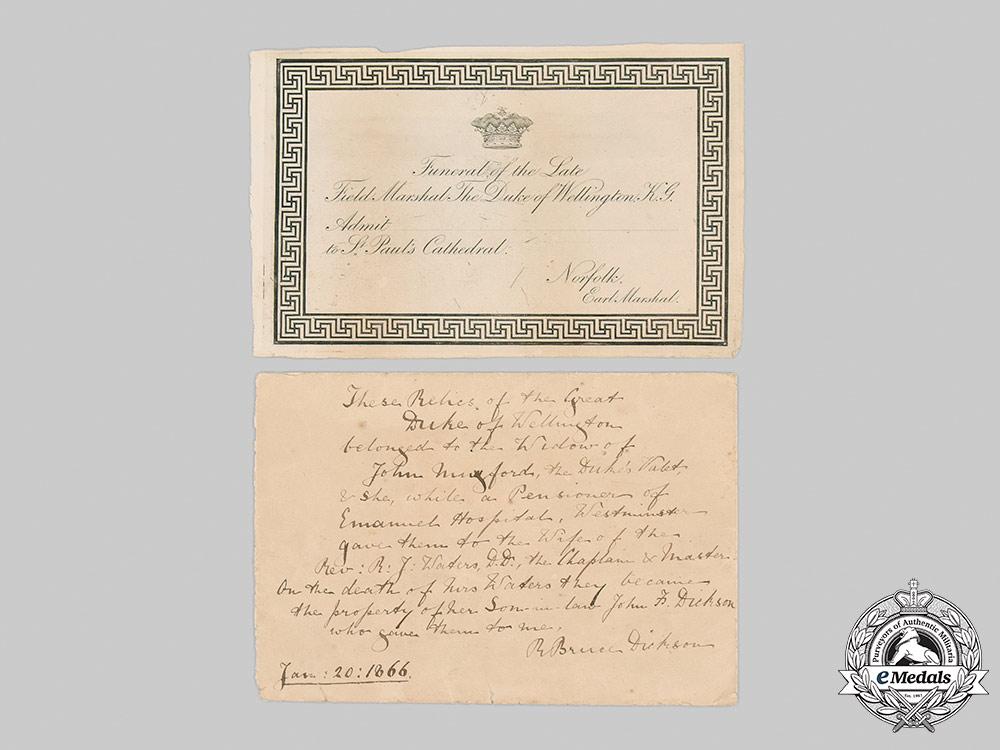 Funeral of the Late
Field Marshal The Duke of Wellington, K.G.
Admit
to St Paul's Cathedral.
Norfolk,
Earl Marshal.
These Relics of the Great
Duke of Wellington
belonged to the Widow of
John Mugford, the Duke's Valet,
& she, while a Pensioner of
Emanuel Hospital, Westminster
gave them to the Wife of the
Rev: R: J: Waters, D.D:, the Chaplain & Master
On the death of Mrs Waters they became
the property of her Son-in-law John F. Dickson
who gave them to me.
R Bruce Dickson
Jan: 20: 1866.
Purveyors of Authentic Militaria
eMedals
Est. 1967